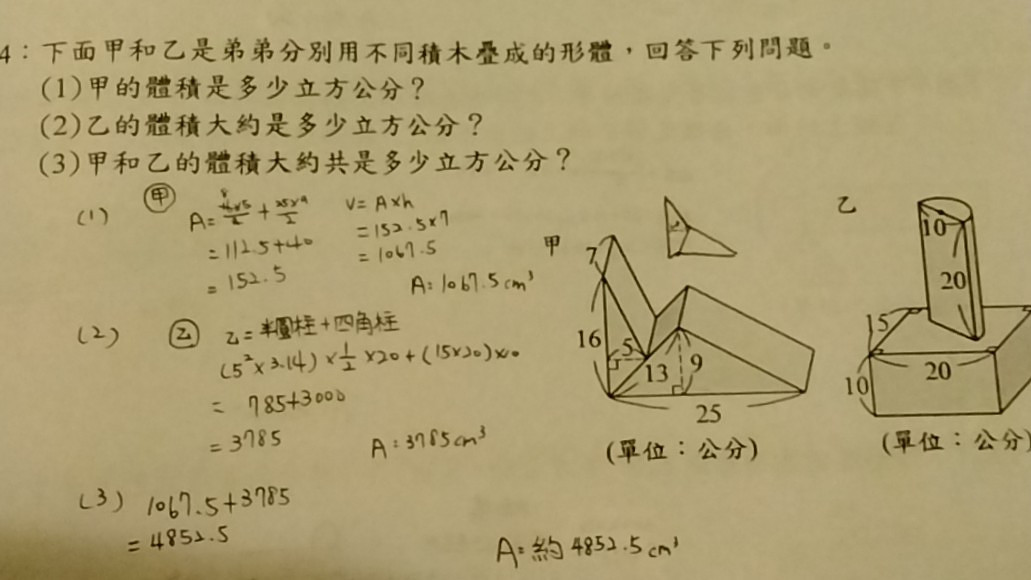 4：下面甲和乙是弟弟分別用不同積木疊成的形體，回答下列問題。
(1)甲的體積是多少立方公分？
(2)乙的體積大約是多少立方公分？
(3)甲和乙的體積大約共是多少立方公分？
(1) 甲
V=A×h
=112.5+40
=152.5×7
=152.5
=1067.5
A:1067.5cm³
甲
7
16
5
13
9
25
(單位：公分)
乙
10
20
15
20
10
(單位：公分)
(2) 乙 乙=半圓柱+四角柱
(5²×3.14)×1/2×20+(15×20)×10
= 785+3000
=3785
A:3785cm³
(3) 1067.5+3785
=4852.5
A:約4852.5cm³